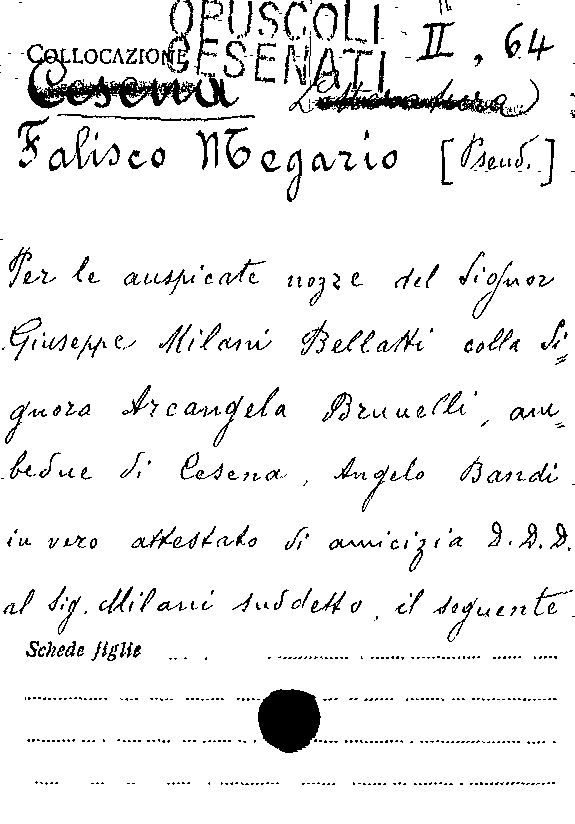 OPUSCOLI
CESENATI II, 64
COLLOCAZIONE
Cesena
Falisco Megario [Pseud.]
Per le auspicate nozze del Signor
Giuseppe Milani Bellatti colla Si=
gnora Arcangela Brunelli, am=
bedue di Cesena, Angelo Bandi
in vero attestato di amicizia D.D.D.
al Sig. Milani suddetto, il seguente
Schede figlie